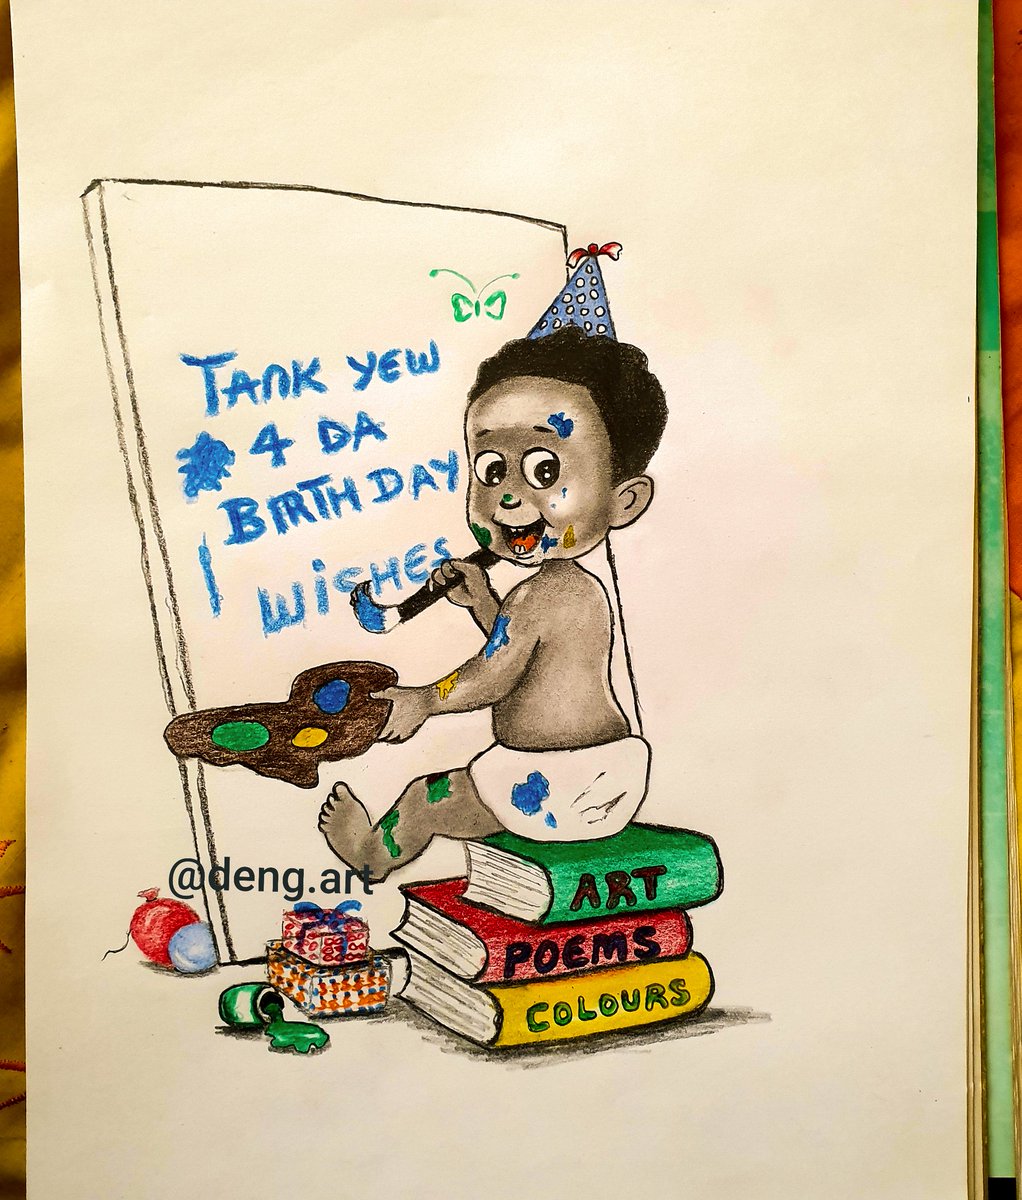 TANK YEW
4 DA
BIRTHDAY
WISHES
@deng.art
ART
POEMS
COLOURS